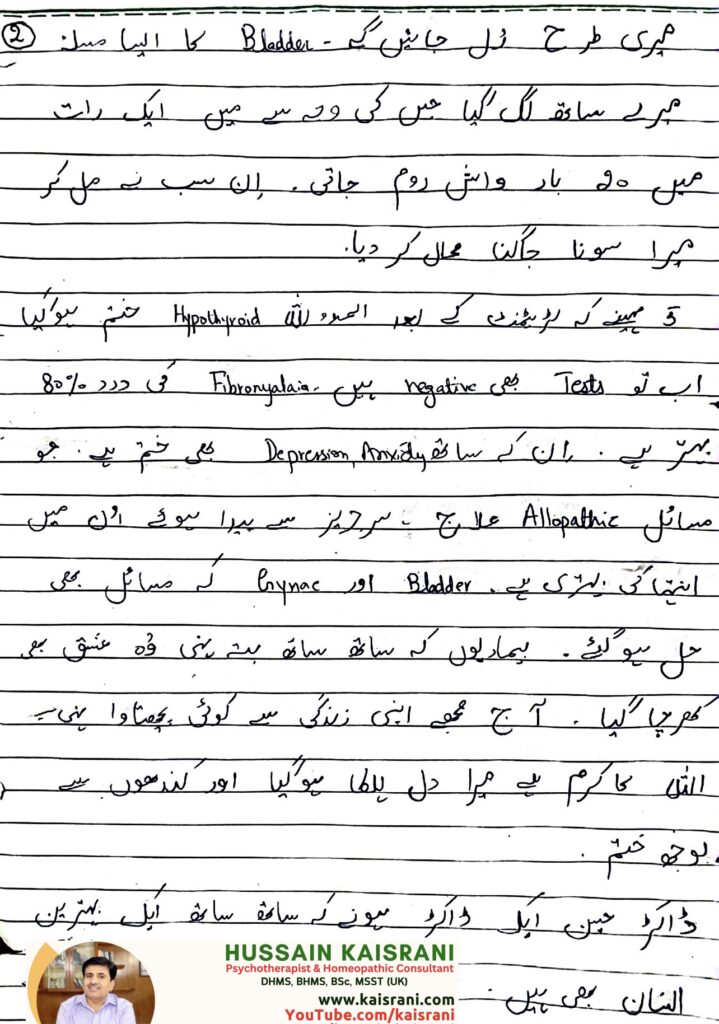 ②
میری طرح رُل جائیں گے - Bladder کا ایسا مسلہ
میرے ساتھ لگ گیا جس کی وجہ سے میں ایک رات
میں 20 بار واش روم جاتی. اِن سب نے مل کر
میرا سونا جاگنا محال کر دیا.
5 مہینے کہ ٹریٹمنٹ کے بعد الحمدوللہ Hypothyroid ختم ہوگیا
اب تو Tests بھی negative ہیں. Fibromyalgia کی درد 80%
بہتر ہے. اِن کے ساتھ Depression, Anxiety بھی ختم ہے. جو
مسائل Allopathic علاج - سرجریز سے پیدا ہوئے اُن میں
انتہا کی بہتری ہے. Bladder اور Gynac کہ مسائل بھی
حل ہوگئے. بیماریوں کہ ساتھ ساتھ پتہ نہی وُہ عشق بھی
کدھر چلا گیا. آج مجھے اپنی زندگی سے کوئی پچھتاوا نہی
اللہ کا کرم ہے میرا دل ہلکا ہوگیا اور کندھوں سے
بوجھ ختم.
ڈاکڑ حسین ایک ڈاکڑ ہونے کہ ساتھ ساتھ ایک بہترین
انسان بھی ہیں.
HUSSAIN KAISRANI
Psychotherapist & Homeopathic Consultant
DHMS, BHMS, BSc, MSST (UK)
www.kaisrani.com
YouTube.com/kaisrani